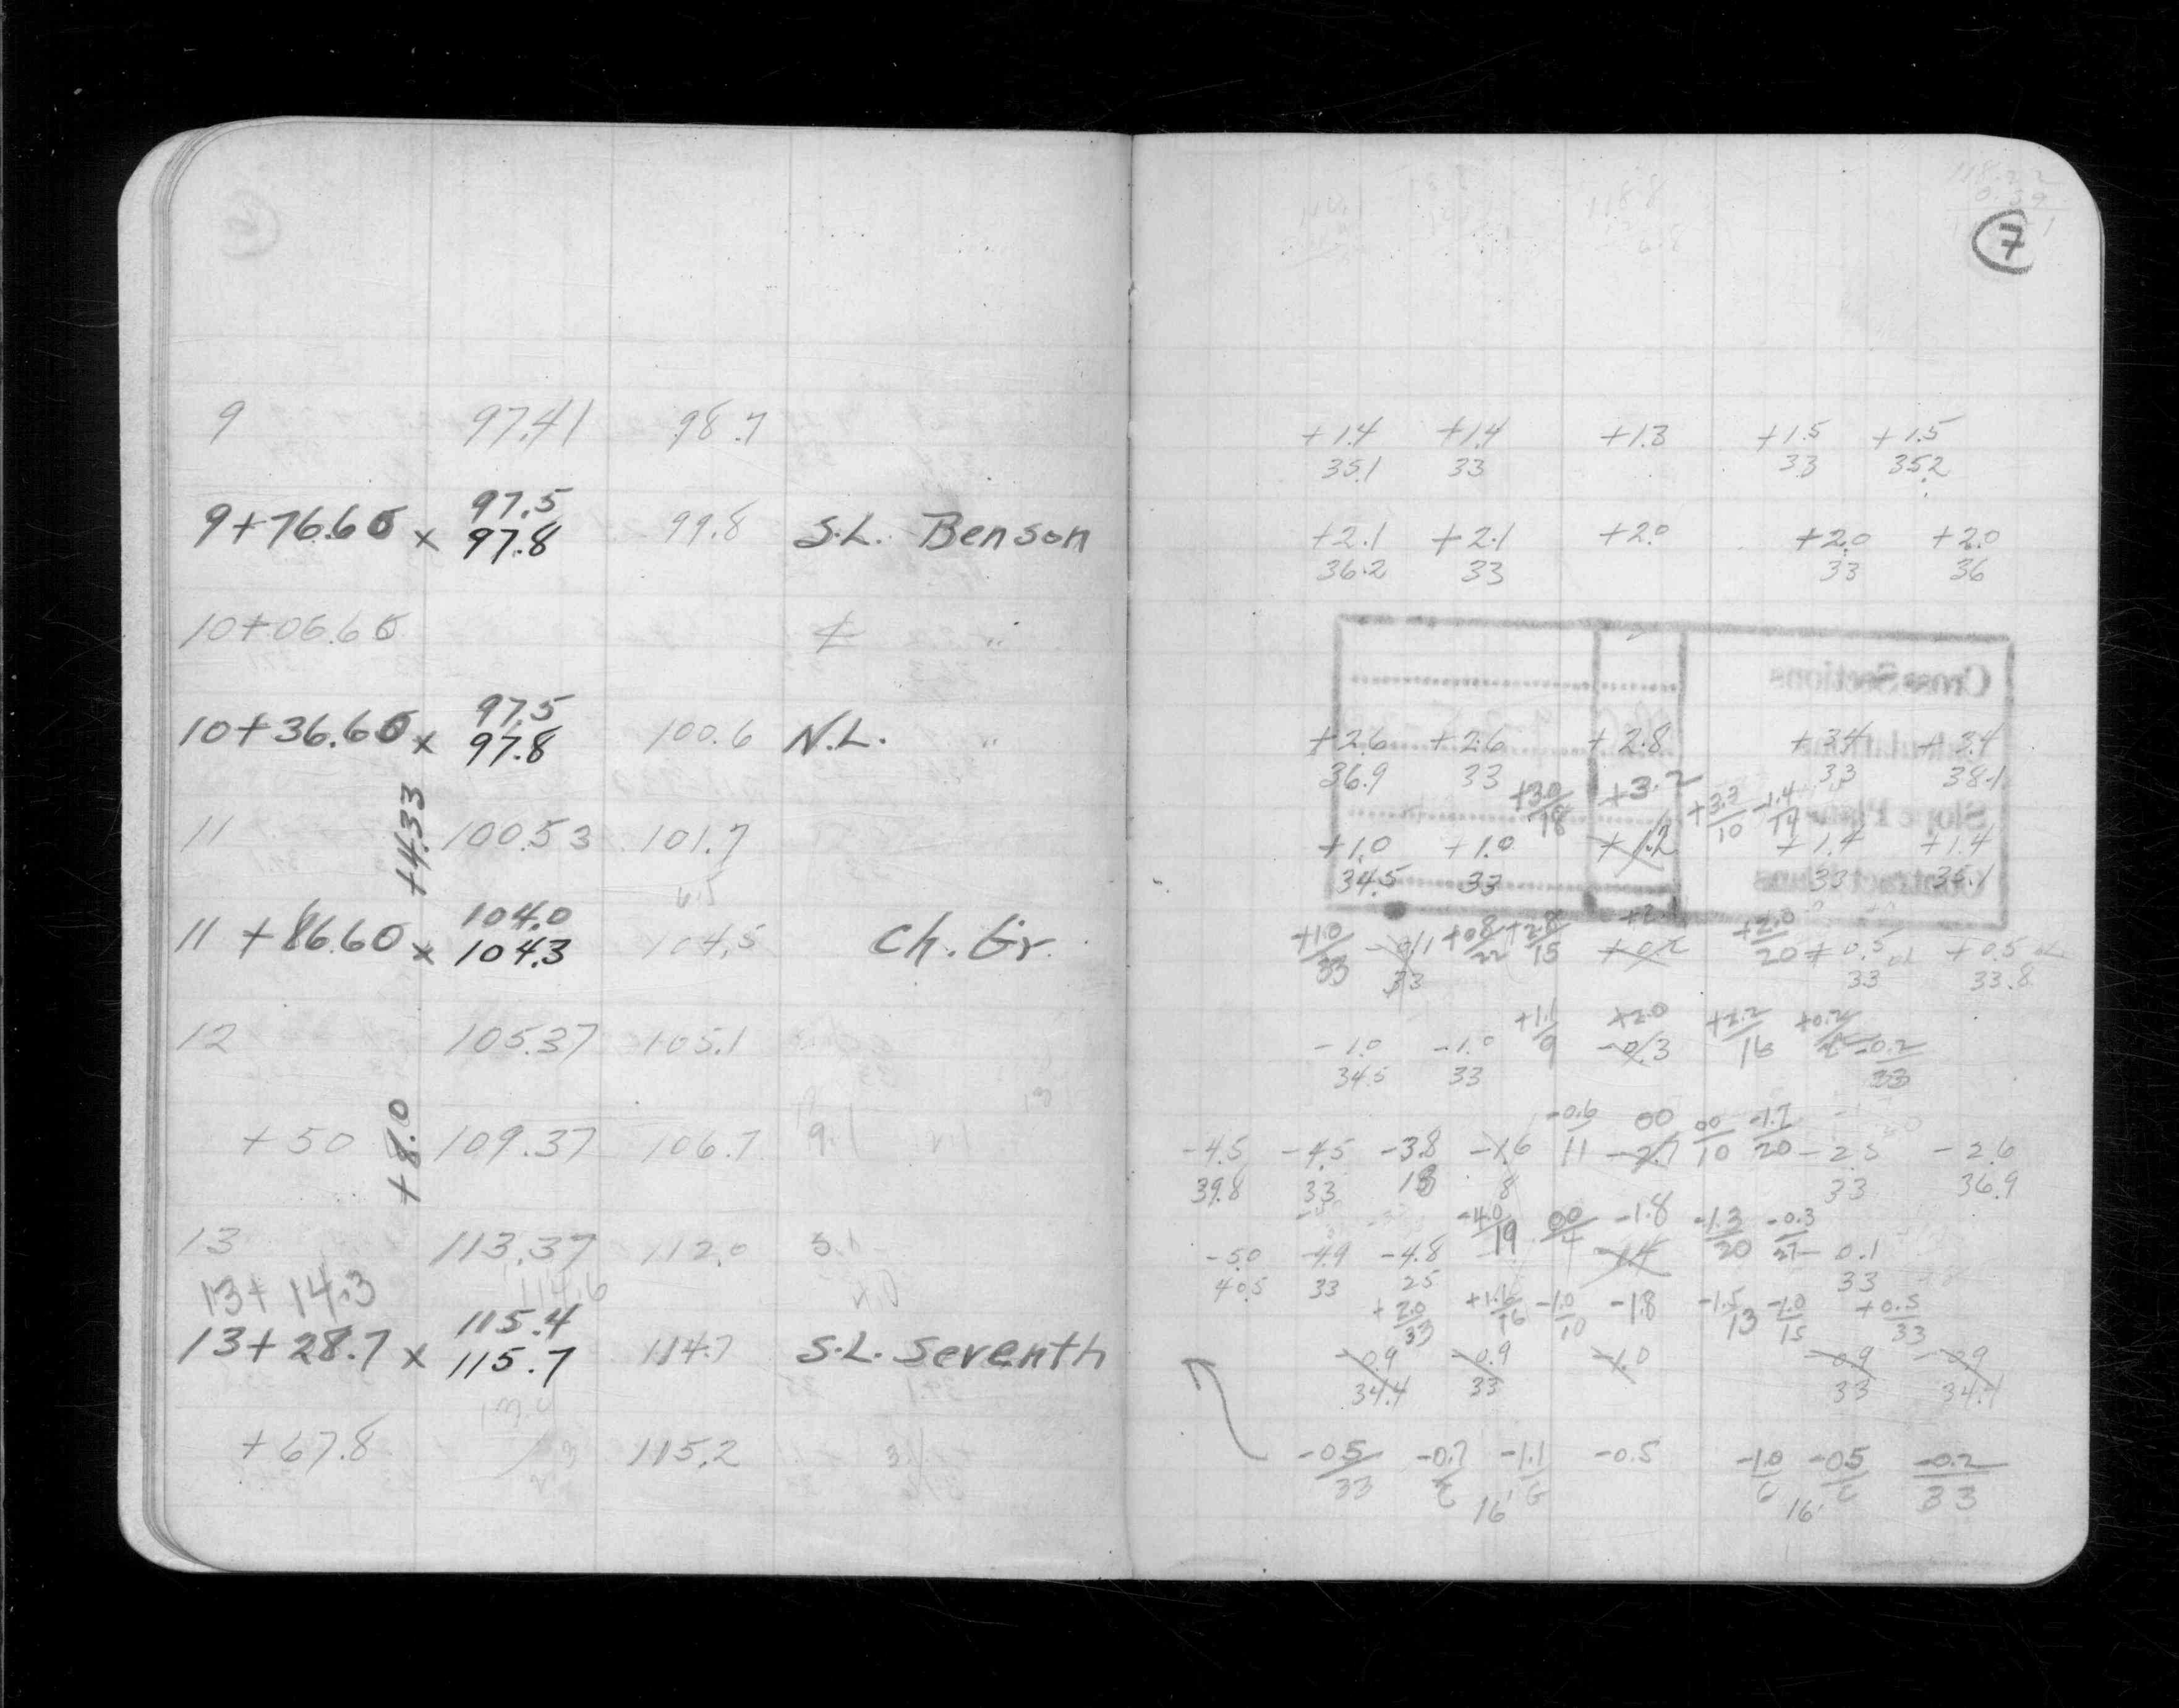 7
9 97.41 98.7
+1.4 +1.4 +1.3 +1.5 +1.5
35.1 33 33 35.2
97.5
9+76.60 x 97.8 99.8 S.L. Benson
+2.1 +2.1 +2.0 +2.0 +2.0
36.2 33 33 36
10+06.66 ₵ "
97.5
10+36.60 x 97.8 100.6 N.L. "
+2.6 +2.6 +2.8 +3.4 +3.4
36.9 33 33 38.1
+3.0 +3.2 +3.3 -1.4
18 10 14
+4.33
11 100.53 101.7
+1.0 +1.0 +1.2 +1.4 +1.4
34.5 33 33 35.1
104.0
11 +86.60 x 104.3 104.5 Ch. Gr.
+1.0 -0.1 +0.8 +2.8 +0.2 +2.0 +0.5 +0.5
33 33 22 15 20 33 33.8
+1.1 +2.0 +2.2 +0.2
9 16
12 105.37 105.1
-1.0 -1.0 -0.3 -0.2
34.5 33 33
-0.6 00 00 -1.7
11 10 20
+8.0
+50 109.37 106.7
-4.5 -4.5 -3.8 -1.6 -2.7 -2.5 -2.6
39.8 33 18 8 33 36.9
-4.0 00 -1.8 -1.3 -0.3
19 4 20 27
13 113.37 112.0
-5.0 -4.9 -4.8 -1.4 -0.1
40.5 33 25 33
13+ 14.3 114.6
+2.0 +1.6 -1.0 -1.8 -1.5 -1.0 +0.5
33 16 10 13 15 33
115.4
13+28.7 x 115.7 114.7 S.L. Seventh
-0.9 -0.9 -1.0 -0.9 -0.9
34.4 33 33 34.4
+67.8 115.2
-0.5 -0.7 -1.1 -0.5 -1.0 -0.5 -0.2
33 6 6 33
16' 16'
Cross Sections
Slope